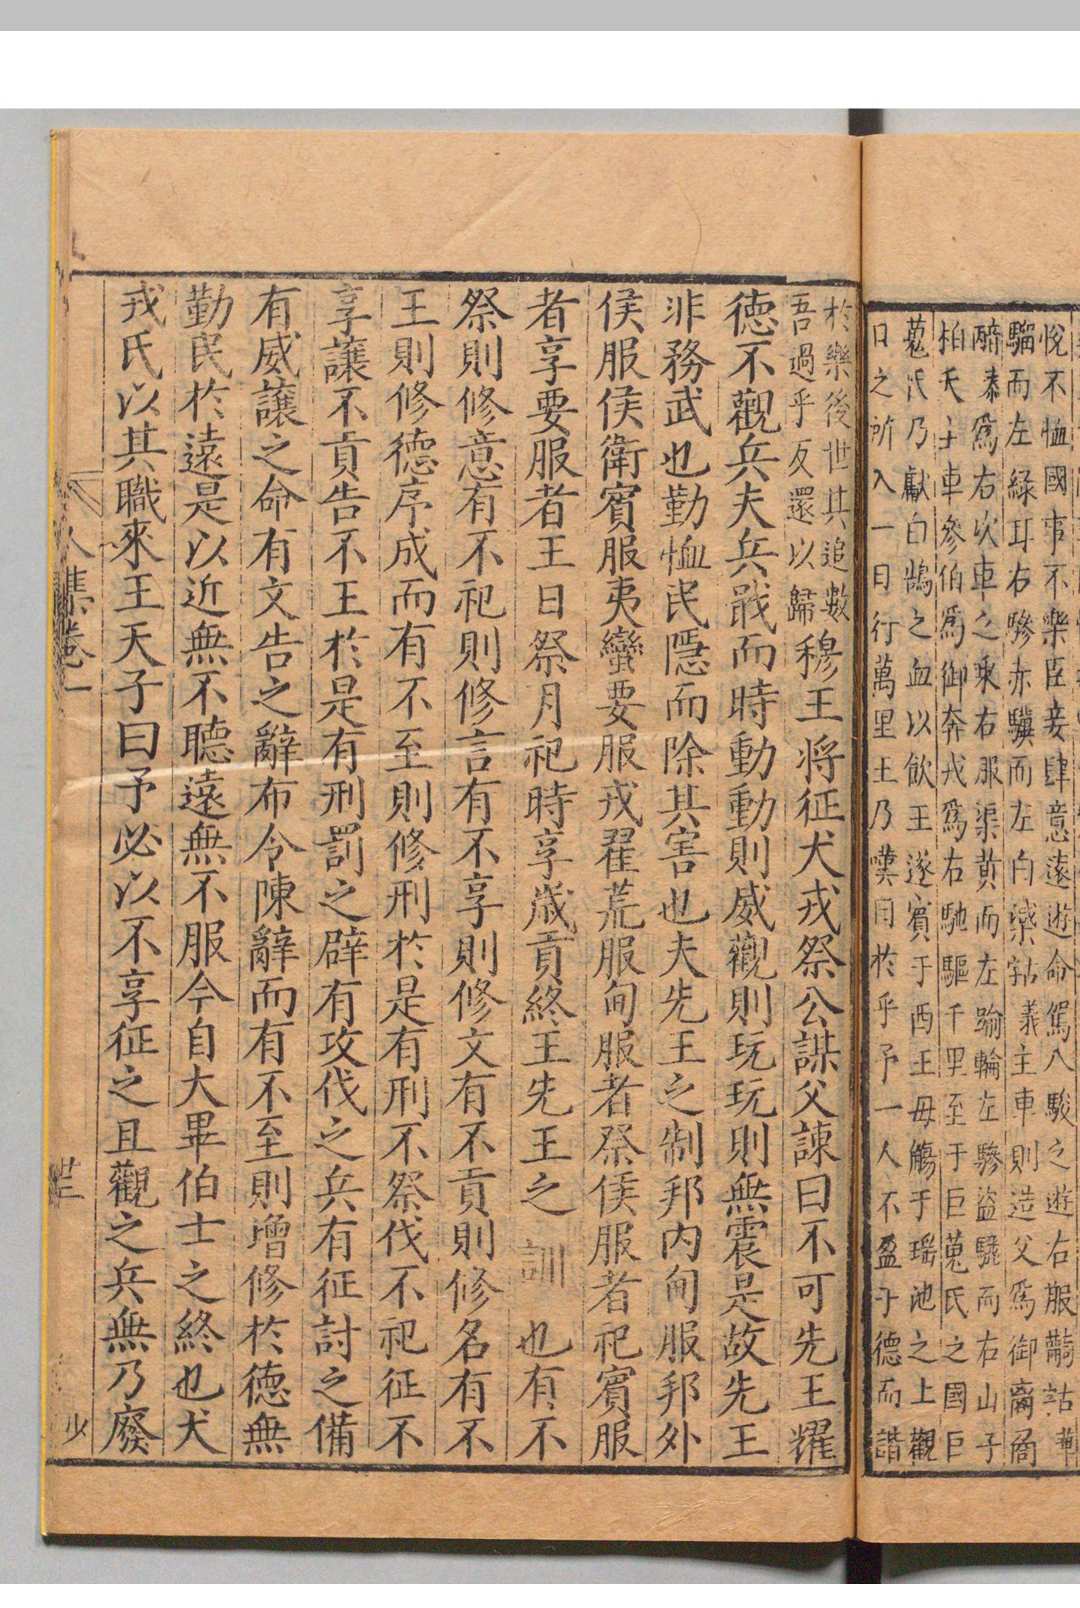 悅不恤國事不樂臣妾肆意遠遊命駕八駿之遊右服
驑而左綠耳右驂赤驥而左白義主車則造父為御
為右次車之乘右服渠黃而左踰輪左驂盜驪而右山子
柏夭主車參伯為御奔戎為右馳驅千里至于巨蒐氏之國巨
蒐氏乃獻白鵠之血以飲王遂賓于西王母觴于瑶池之上觀
日之所入一日行萬里王乃嘆曰於乎予一人不盈于德而諧
於樂後世其追數
吾過乎反還以歸
穆王将征犬戎祭公謀父諫曰不可先王耀
德不觀兵夫兵戢而時動動則威觀則玩玩則無震是故先王
非務武也勤恤民隱而除其害也夫先王之制邦內甸服邦外
侯服侯衛賓服夷蠻要服戎翟荒服甸服者祭侯服者祀賓服
者享要服者王日祭月祀時享歲貢終王先王之訓也有不
祭則修意有不祀則修言有不享則修文有不貢則修名有不
王則修德序成而有不至則修刑於是有刑不祭伐不祀征不
享讓不貢告不王於是有刑罰之辟有攻伐之兵有征討之備
有威讓之命有文告之辭布令陳辭而有不至則增修於德無
勤民於遠是以近無不聽遠無不服今自大畢伯士之終也犬
戎氏以其職來王天子曰予必以不享征之且觀之兵無乃廢
人集卷一
少